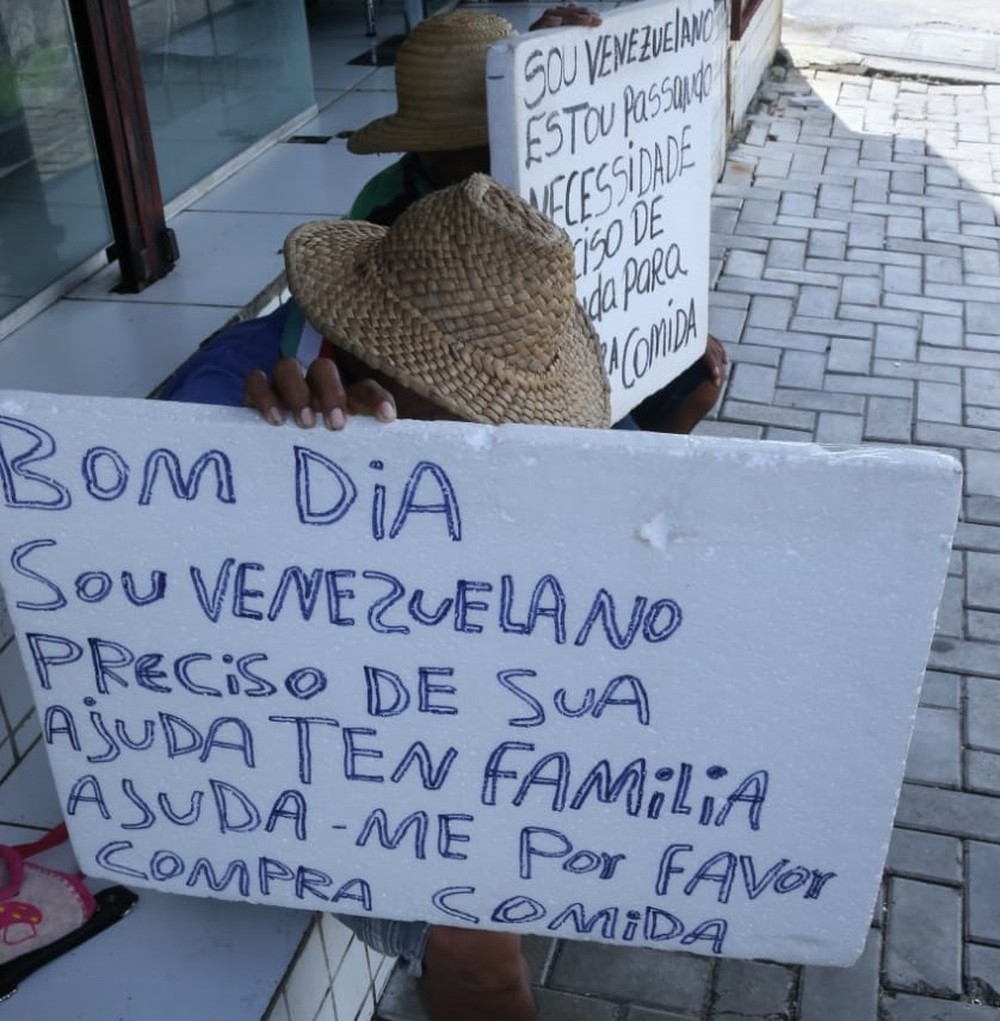 SOU VENEZUELANO
ESTOU PASSANDO
NECESSIDADE
DE
PARA
COMIDA
BOM DIA
SOU VENEZUELANO
PRECISO DE SUA
AJUDA TEN FAMILIA
AJUDA-ME POR FAVOR
COMPRA COMIDA